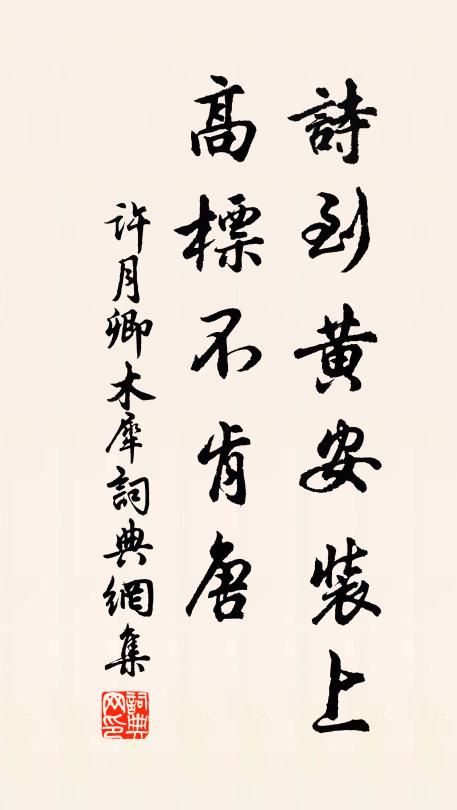 詩到黄安裝上
高標不肯唐
許月卿木犀詞典網集
詞典网印